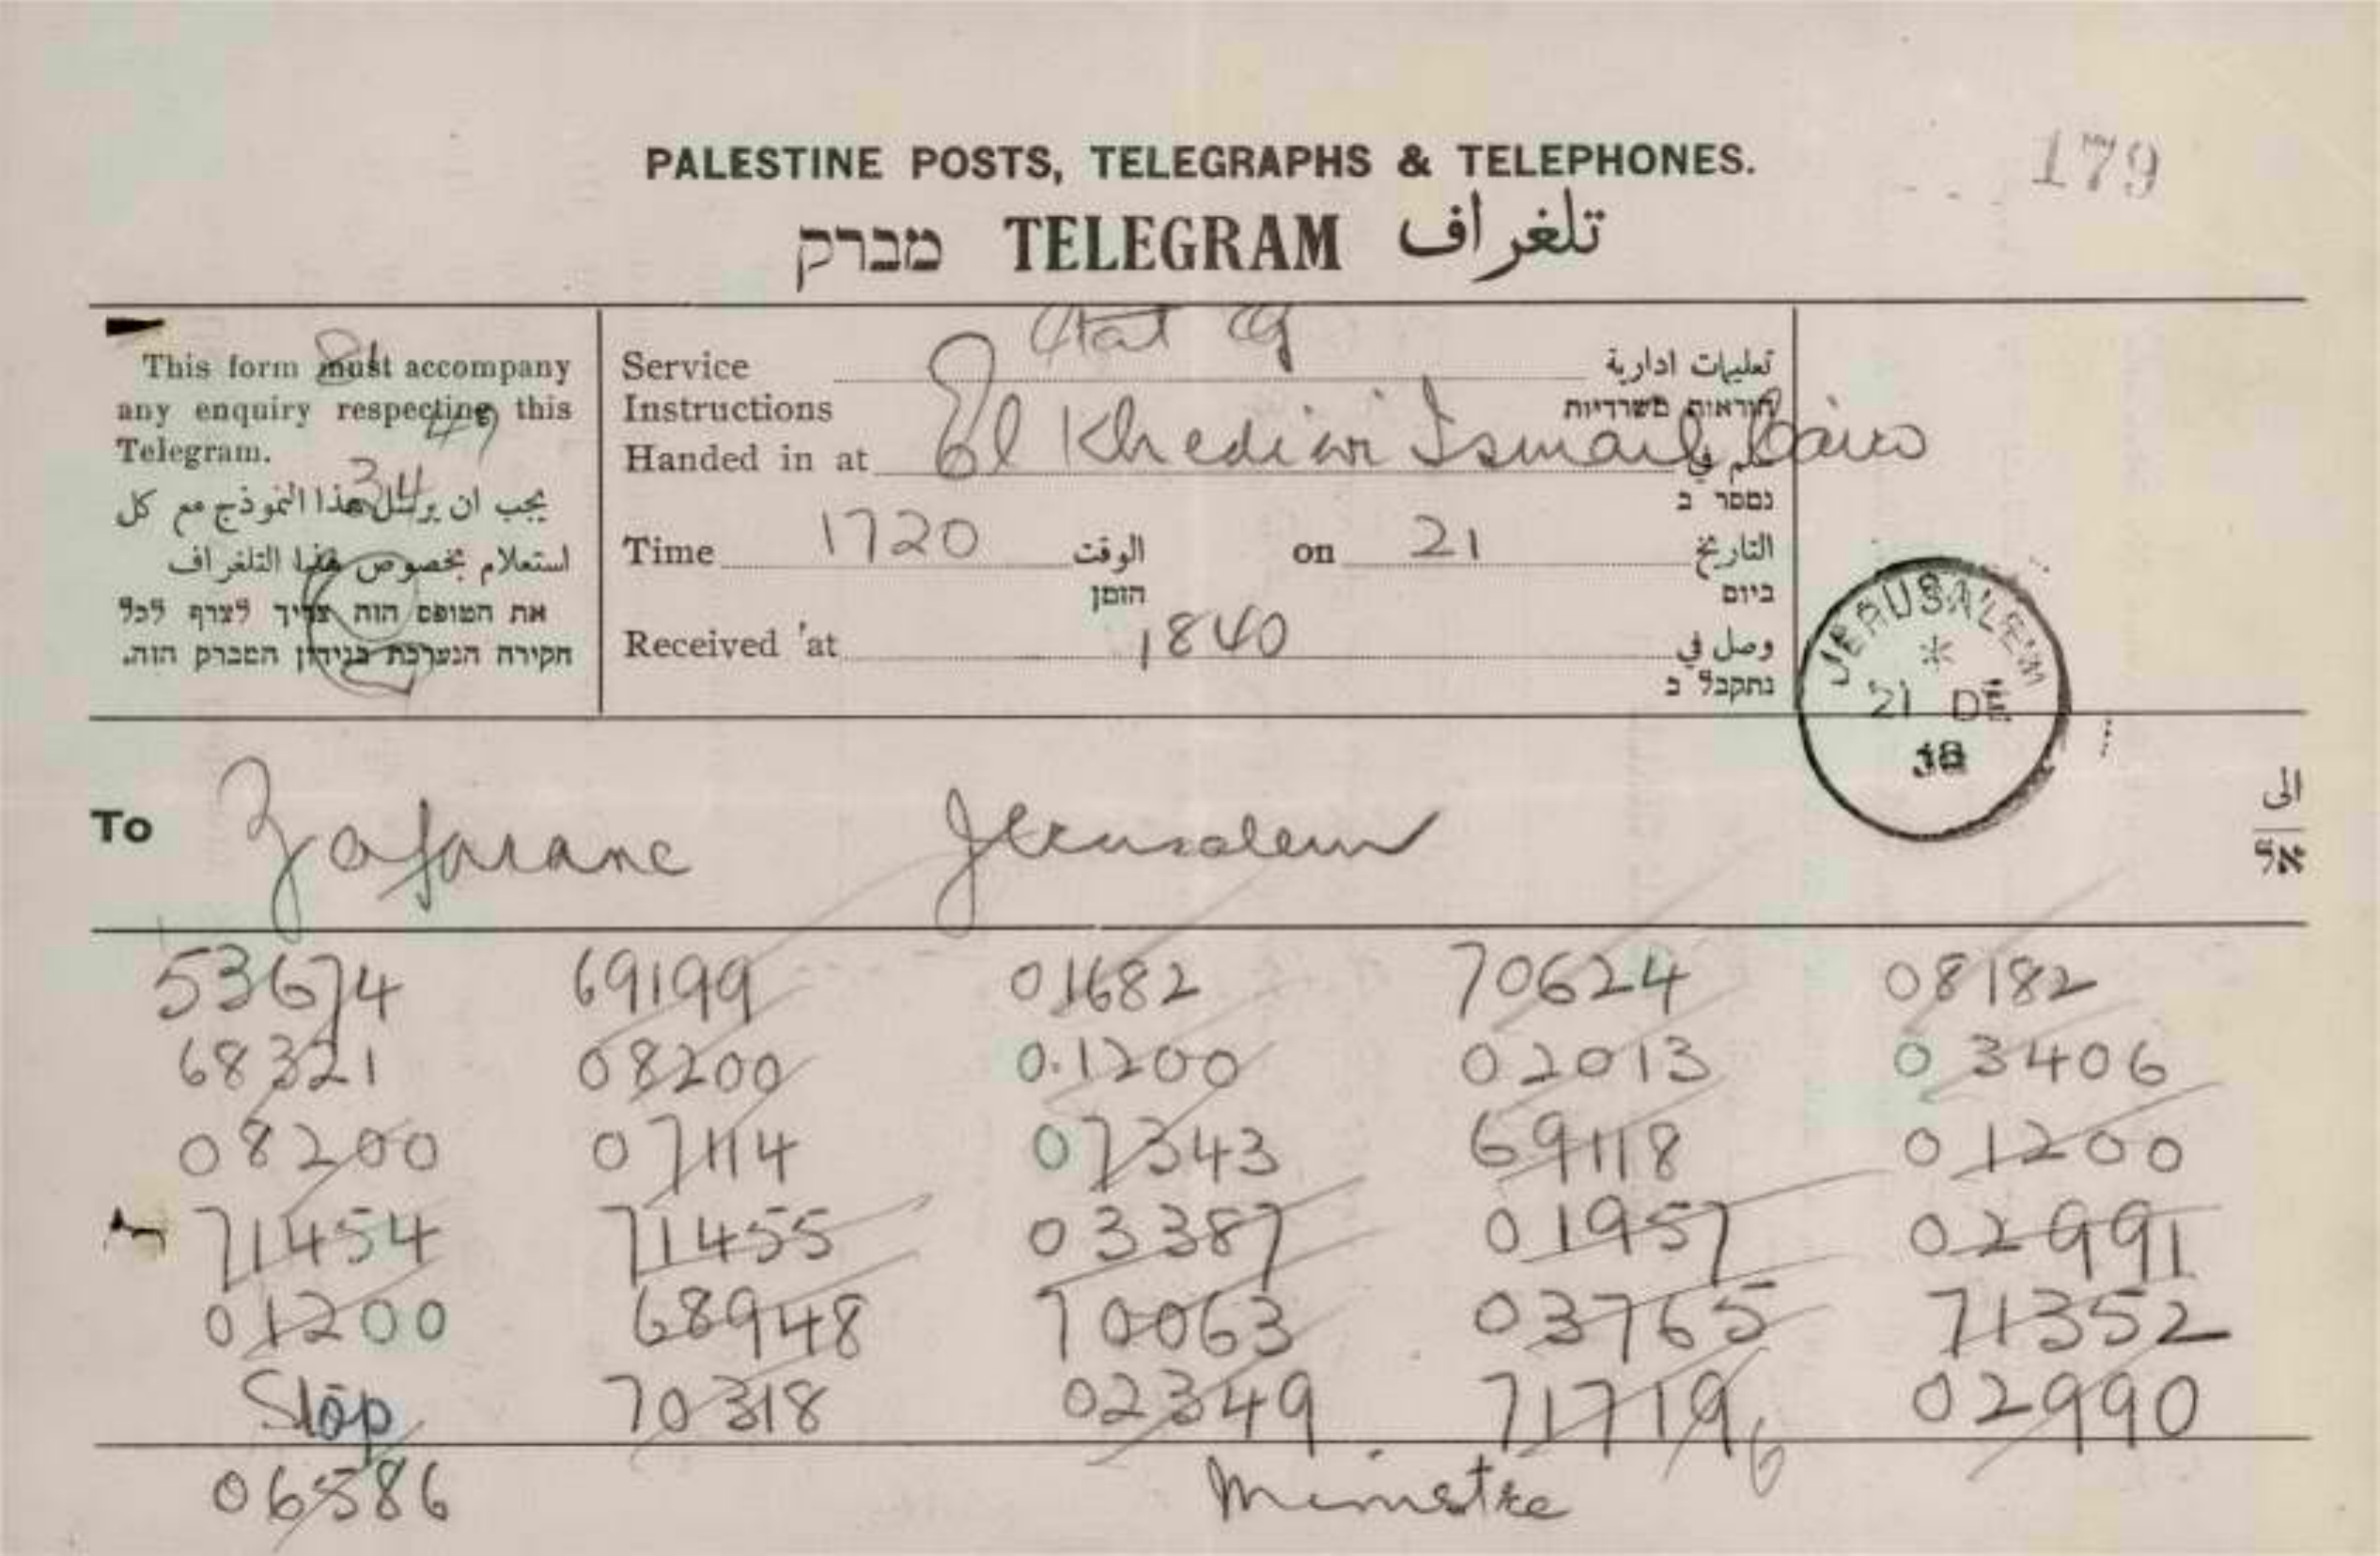 179
PALESTINE POSTS, TELEGRAPHS & TELEPHONES.
מברק TELEGRAM تلغراف
This form must accompany
any enquiry respecting this
Telegram.
يجب ان يرسل هذا النموذج مع كل
استعلام بخصوص هذا التلغراف
את הטופס הזה צריך לצרף לכל
חקירה הנערכת בנידון המברק הזה.
81
49
34
Etat
Service تعليمات ادارية
Instructions הוראות משרדיות
Handed in at El Khediwi Ismail Cairo سلم في
נמסר ב
Time 1720 الوقت on 21 التاريخ
הזמן ביום
Received at 1840 وصل في
נתקבל ב
JERUSALEM
21 DE
To Zafarane Jerusalem الى
אל
53674 69199 01682 70624 08182
68321 08200 01200 02013 03406
08200 07114 07343 69118 01200
71454 71455 03387 01957 02991
01200 68948 70063 03765 71352
Stop 70318 02349 71719 02990
6
06586 Ministre